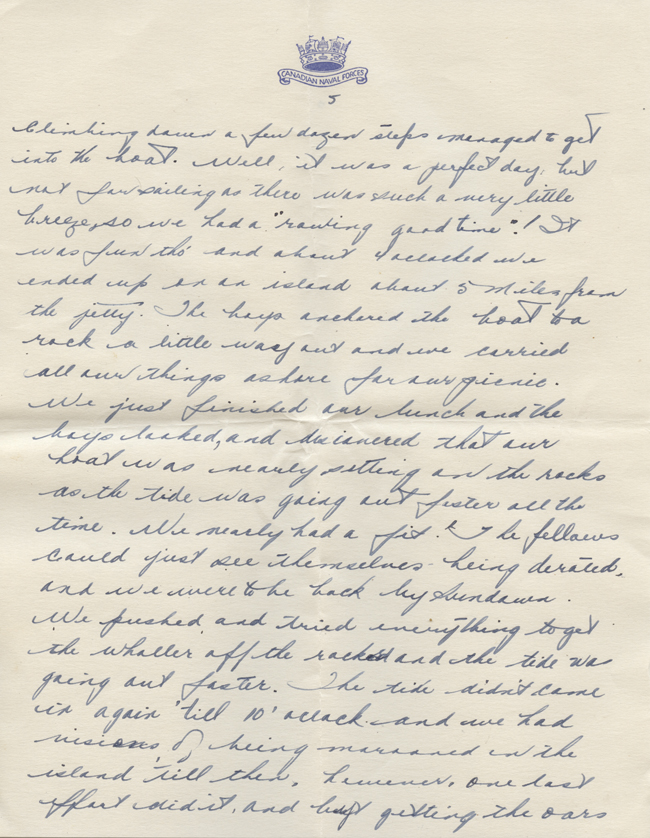 CANADIAN NAVAL FORCES
5
Climbing down a few dozen steps managed to get
into the boat. Well, it was a perfect day, but
not for sailing as there was such a very little
breeze, so we had a "rowing good time"! It
was fun tho' and about 4 oclocked we
ended up on an island about 5 miles from
the jetty. The boys anchored the boat to a
rock a little way out and we carried
all our things ashore for our picnic.
We just finished our lunch and the
boys looked, and discovered that our
boat was nearly sitting on the rocks
as the tide was going out faster all the
time. We nearly had a fit! The fellows
could just see themselves being derated,
and we were to be back by Sundown.
We pushed and tried everything to get
the whaller off the rocks and the tide was
going out faster. The tide didn't come
in again 'till 10' oclock and we had
visions of being marooned in the
island 'till then, however, one last
effort did it, and but getting the oars